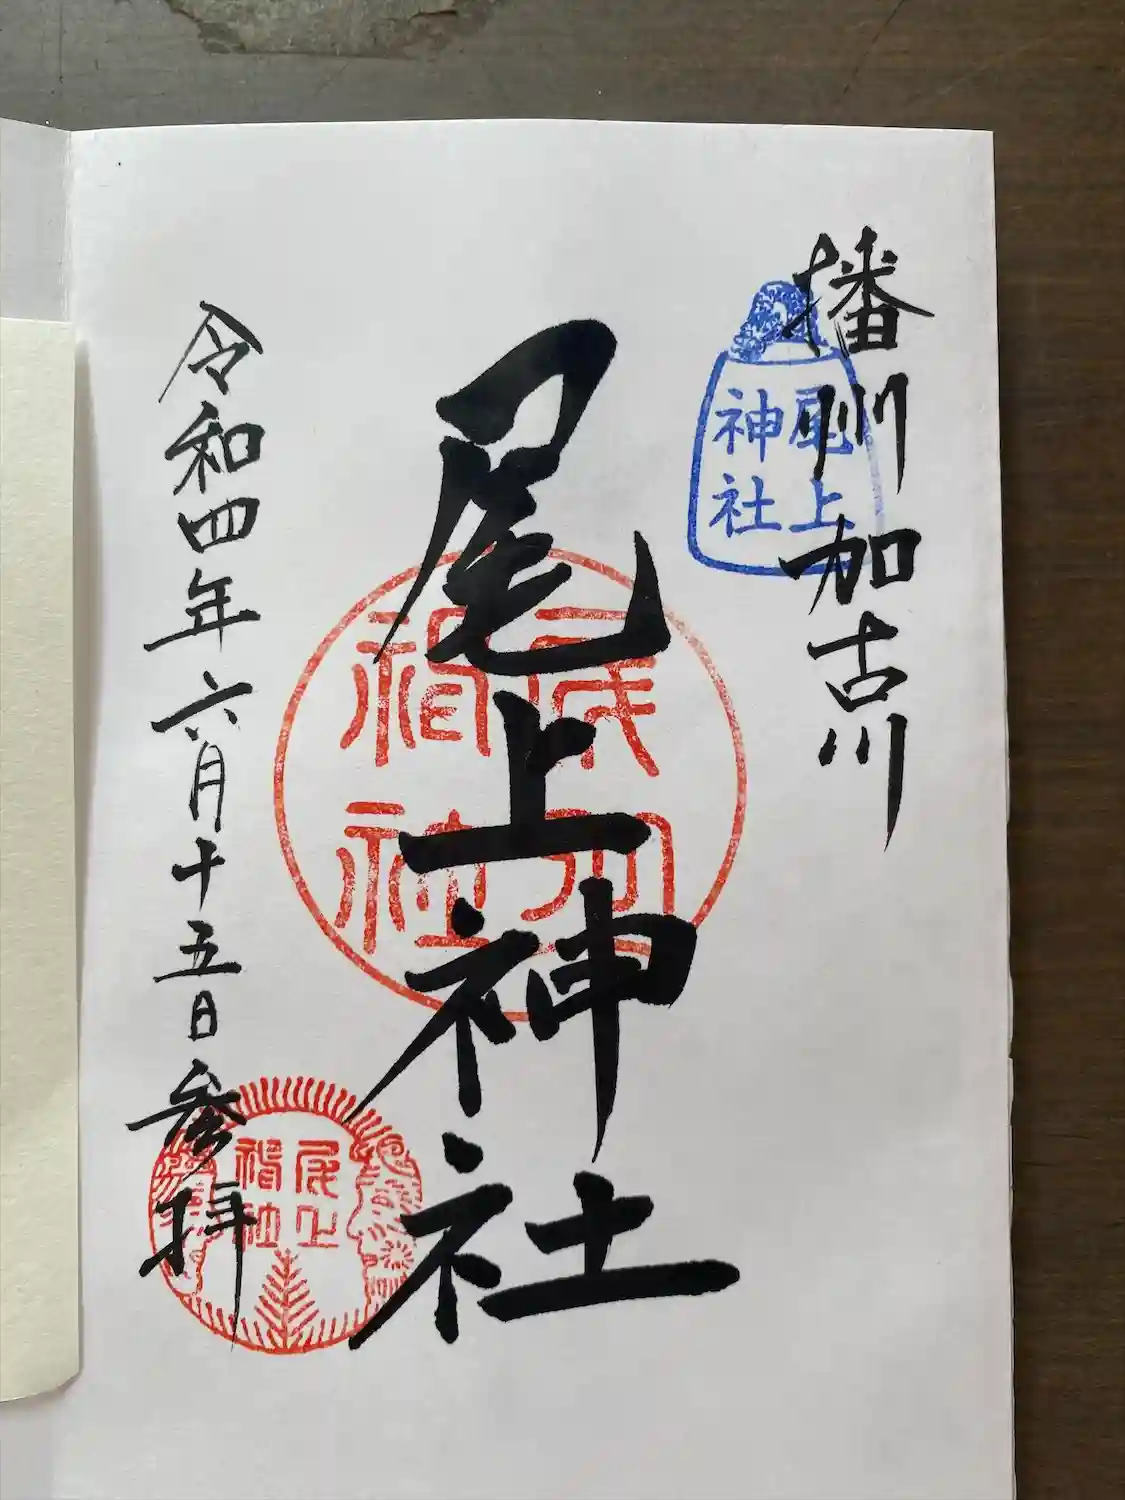 播州加古川
尾上
神社
尾上神社
尾上
神社
令和四年六月十五日参拝
尾上
神社